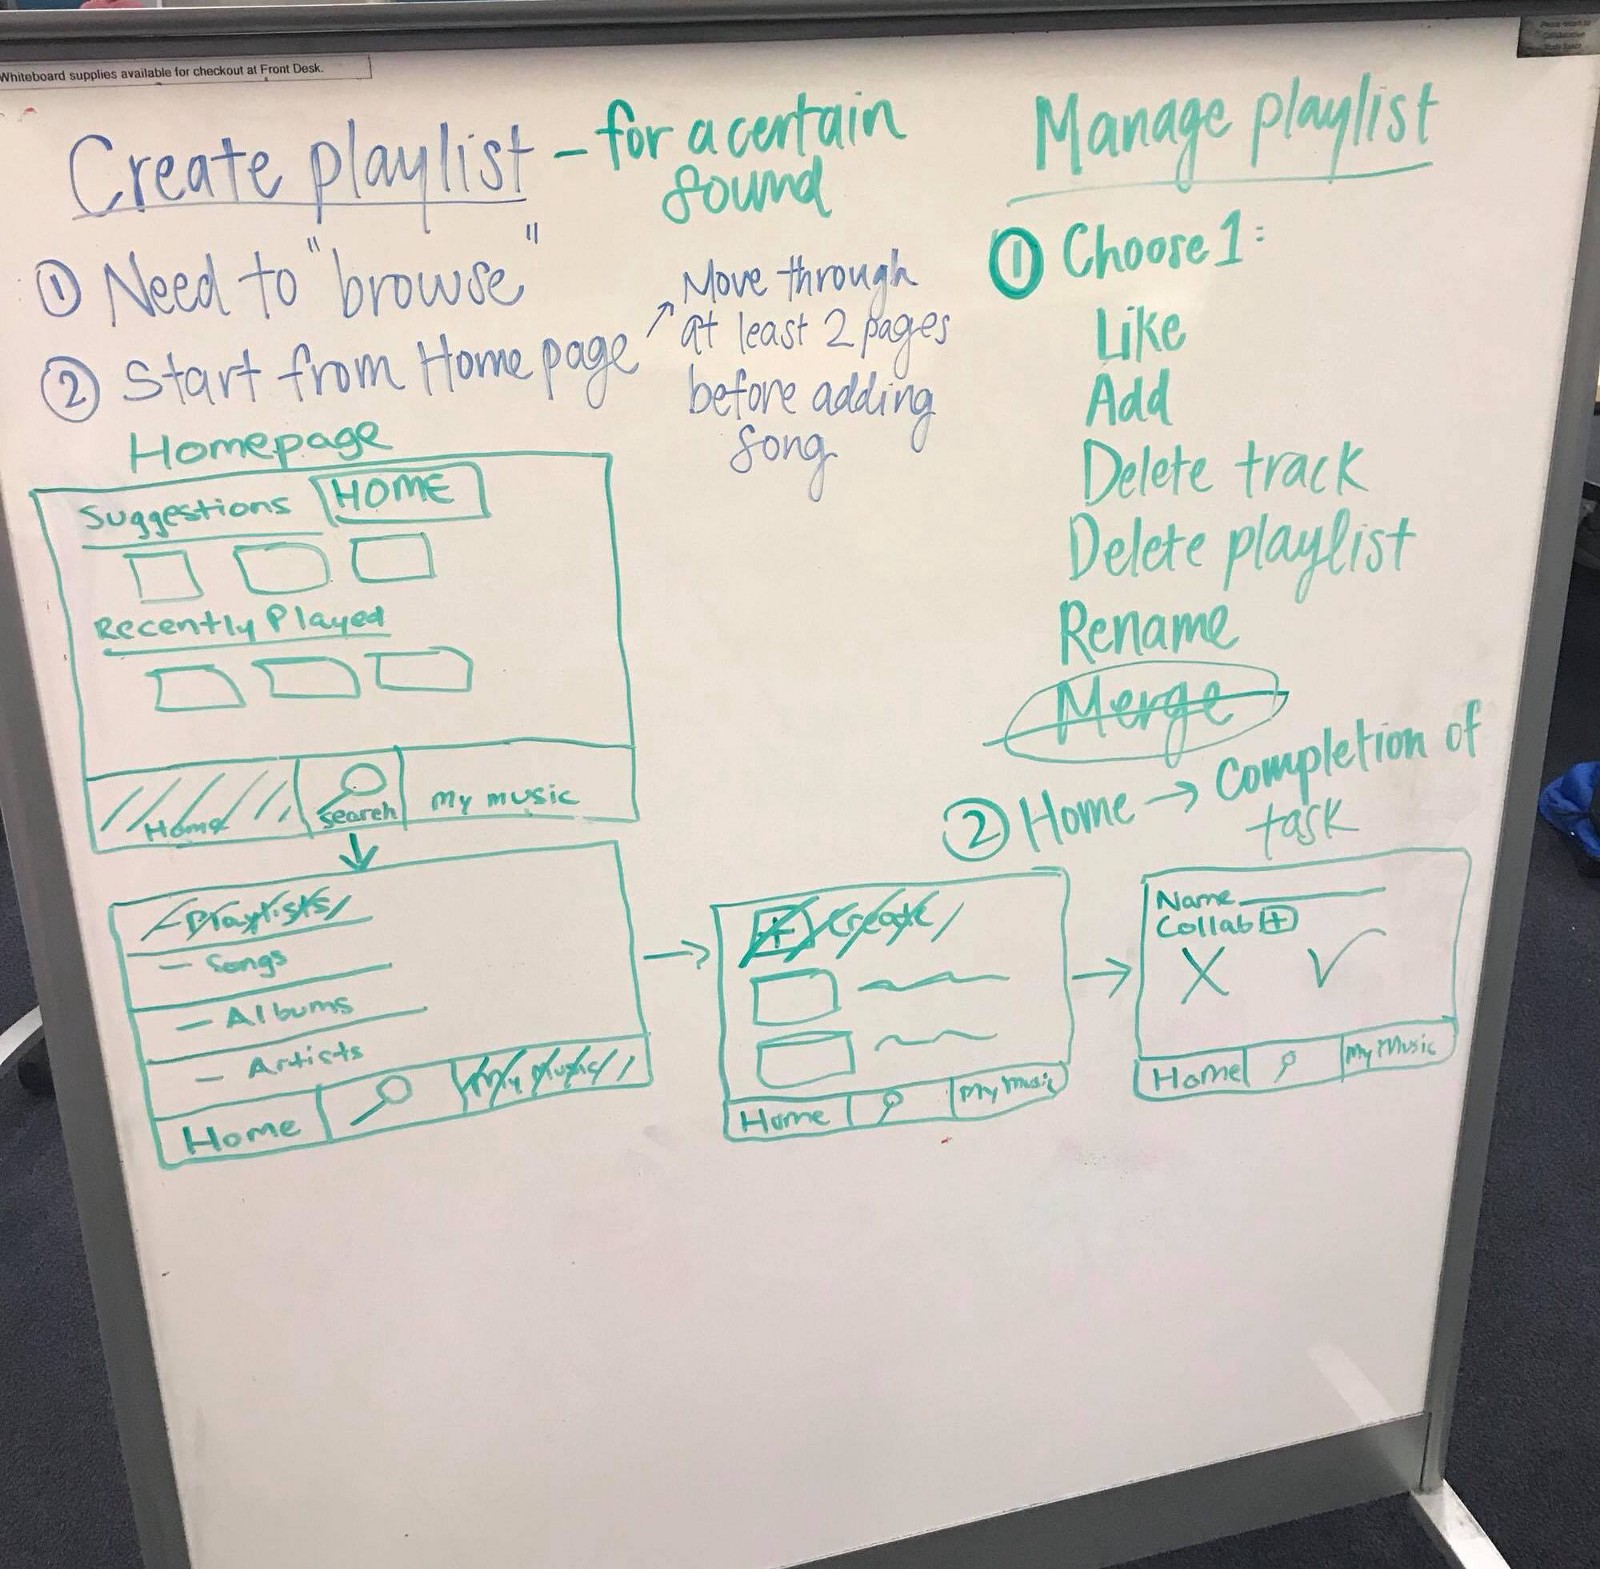 Whiteboard supplies available for checkout at Front Desk.
Create playlist - for a certain
sound
① Need to "browse"
② Start from Home page
Move through
at least 2 pages
before adding
song
Homepage
Suggestions
HOME
Recently Played
Home
Search
My music
Playlists
- Songs
- Albums
- Artists
Home
My Music
+ Create
Home
My Music
Name
Collab +
X ✓
Home
My Music
Manage playlist
① Choose 1:
Like
Add
Delete track
Delete playlist
Rename
Merge
② Home → Completion of
task